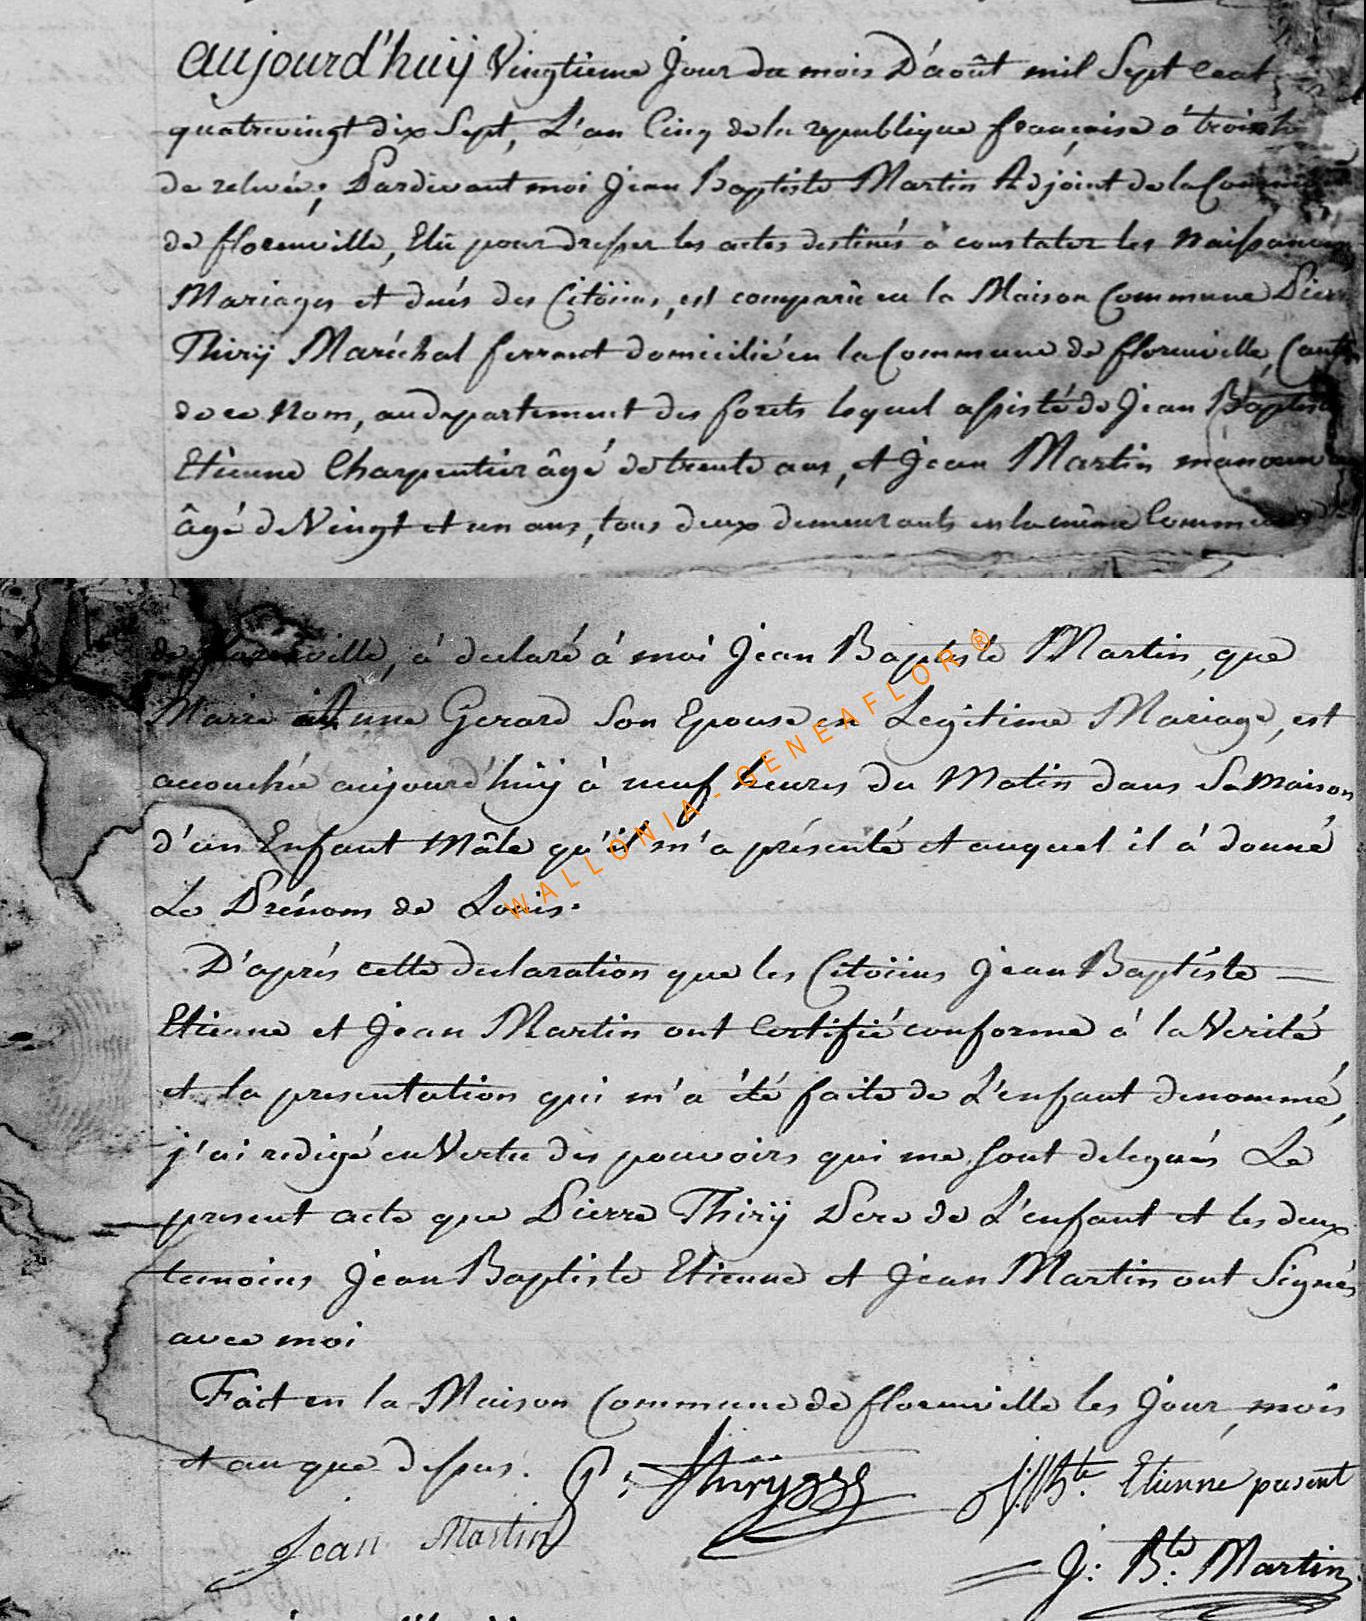 aujourd'huÿ Vingtieme Jour du mois D'août mil Sept cent
quatrevingt dix Sept, L'an Cinq de la republique française à trois h
de relevée; Pardevant moi Jean Baptiste Martin Adjoint de la Commune
de florenville, Elû pour dresser les actes destinés à constater les Naissances
Mariages et decés des Citoïens, est comparû en la Maison Commune Pierre
Thirÿ Maréchal ferrant domicilié en la Commune de florenville, Canton
de ce Nom, au departement des forets lequel assisté de Jean Baptiste
Etienne Charpentier âgé de trente ans, et Jean Martin manoeuvre
âgé de Vingt et un ans, tous deux demeurants en la même Commune
de florenville, à declaré à moi Jean Baptiste Martin, que
Marie Gerard Son Epouse en Legitime Mariage, est
accouchée aujourd'huÿ à neuf heures du Matin dans Sa Maison
d'un Enfant Mâle qu'il m'a présenté et auquel il à donné
Le Prénom de Louis.
D'aprés cette declaration que les Citoïens Jean Baptiste —
Etienne et Jean Martin ont Certifié conforme à la Verité
et la presentation qui m'a été faite de L'enfant denommé,
j'ai redigé en Vertu des pouvoirs qui me sont delegués Le
present acte que Pierre Thirÿ Pere de L'enfant et les deux
temoins Jean Baptiste Etienne et Jean Martin ont Signés
avec moi
Fait en la Maison Commune de florenville les Jour, mois
et an que dessus. P: thirÿ J: Bte. Etienne present
Jean Martin
J: Bte: Martin
WALLONIA-GENEAFLOR®